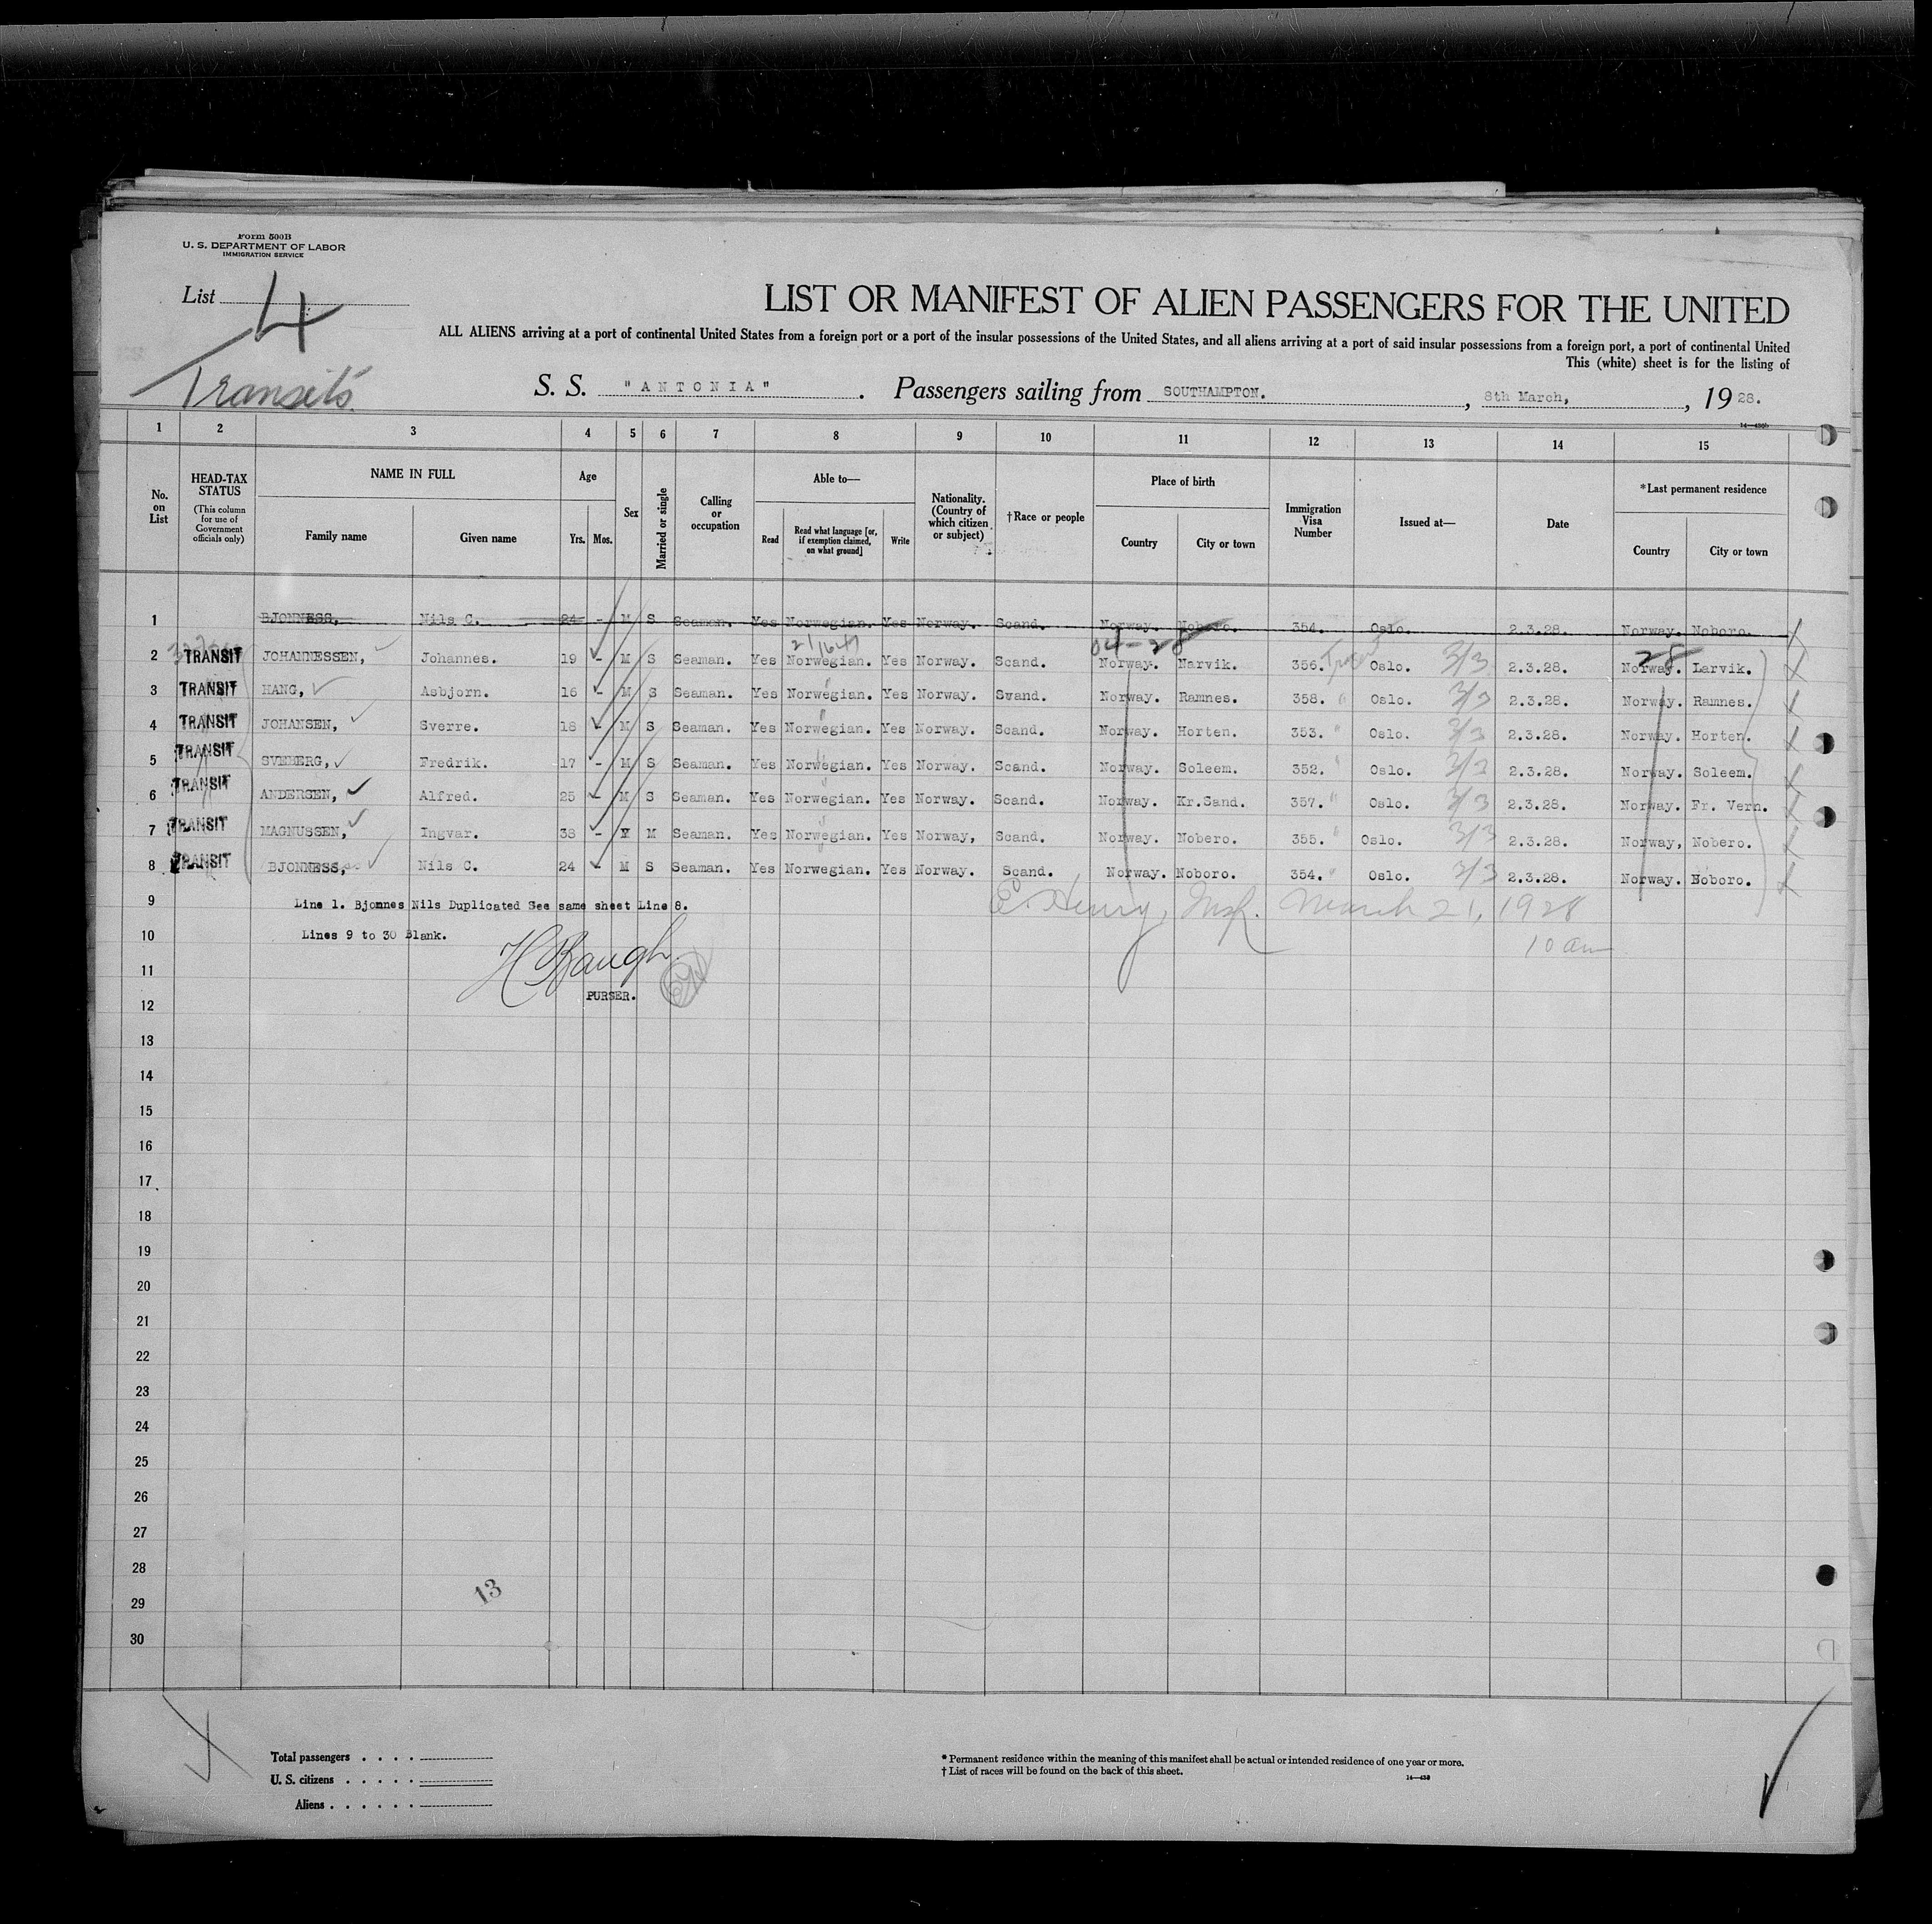 Form 500B
U. S. DEPARTMENT OF LABOR
IMMIGRATION SERVICE
List 4
Transits
LIST OR MANIFEST OF ALIEN PASSENGERS FOR THE UNITED
ALL ALIENS arriving at a port of continental United States from a foreign port or a port of the insular possessions of the United States, and all aliens arriving at a port of said insular possessions from a foreign port, a port of continental United
This (white) sheet is for the listing of
S. S. "ANTONIA". Passengers sailing from SOUTHAMPTON. , 8th March, , 19 28.
14—436b
1 2 3 4 5 6 7 8 9 10 11 12 13 14 15
No. on List
HEAD-TAX STATUS (This column for use of Government officials only)
NAME IN FULL
Family name Given name
Age
Yrs. Mos.
Sex
Married or single
Calling or occupation
Able to—
Read
Read what language [or, if exemption claimed, on what ground]
Write
Nationality. (Country of which citizen or subject)
†Race or people
Place of birth
Country City or town
Immigration Visa Number
Issued at—
Date
*Last permanent residence
Country City or town
1 BJONNESS, Nils C. 24 - M S Seaman. Yes Norwegian. Yes Norway. Scand. Norway. Noboro. 354. Oslo. 2.3.28. Norway. Noboro.
04-28 28
2 TRANSIT JOHANNESSEN, Johannes. 19 - M S Seaman. Yes Norwegian. Yes Norway. Scand. Norway. Narvik. 356. Oslo. 3/3 2.3.28. Norway. Larvik.
3 TRANSIT HANG, Asbjorn. 16 - M S Seaman. Yes Norwegian. Yes Norway. Svand. Norway. Ramnes. 358. " Oslo. 3/3 2.3.28. Norway. Ramnes.
4 TRANSIT JOHANSEN, Sverre. 18 - M S Seaman. Yes Norwegian. Yes Norway. Scand. Norway. Horten. 353. " Oslo. 3/3 2.3.28. Norway. Horten.
5 TRANSIT SVEBERG, Fredrik. 17 - M S Seaman. Yes Norwegian. Yes Norway. Scand. Norway. Soleem. 352. " Oslo. 3/3 2.3.28. Norway. Soleem.
6 TRANSIT ANDERSEN, Alfred. 25 - M S Seaman. Yes Norwegian. Yes Norway. Scand. Norway. Kr.Sand. 357. " Oslo. 3/3 2.3.28. Norway. Fr. Vern.
7 TRANSIT MAGNUSSEN, Ingvar. 38 - M M Seaman. Yes Norwegian. Yes Norway, Scand. Norway. Nobero. 355. " Oslo. 3/3 2.3.28. Norway, Nobero.
8 TRANSIT BJONNESS, Nils C. 24 - M S Seaman. Yes Norwegian. Yes Norway. Scand. Norway. Noboro. 354. " Oslo. 3/3 2.3.28. Norway. Noboro.
9 Line 1. Bjonnes Nils Duplicated See same sheet Line 8.
E. Henry, Insp. March 21, 1928
10 Lines 9 to 30 Blank.
10 am
11 H Baugh
PURSER.
12
13
14
15
16
17
18
19
20
21
22
23
24
25
26
27
28
13
29
30
Total passengers . . . .
U. S. citizens . . . . .
Aliens . . . . . .
* Permanent residence within the meaning of this manifest shall be actual or intended residence of one year or more.
† List of races will be found on the back of this sheet.